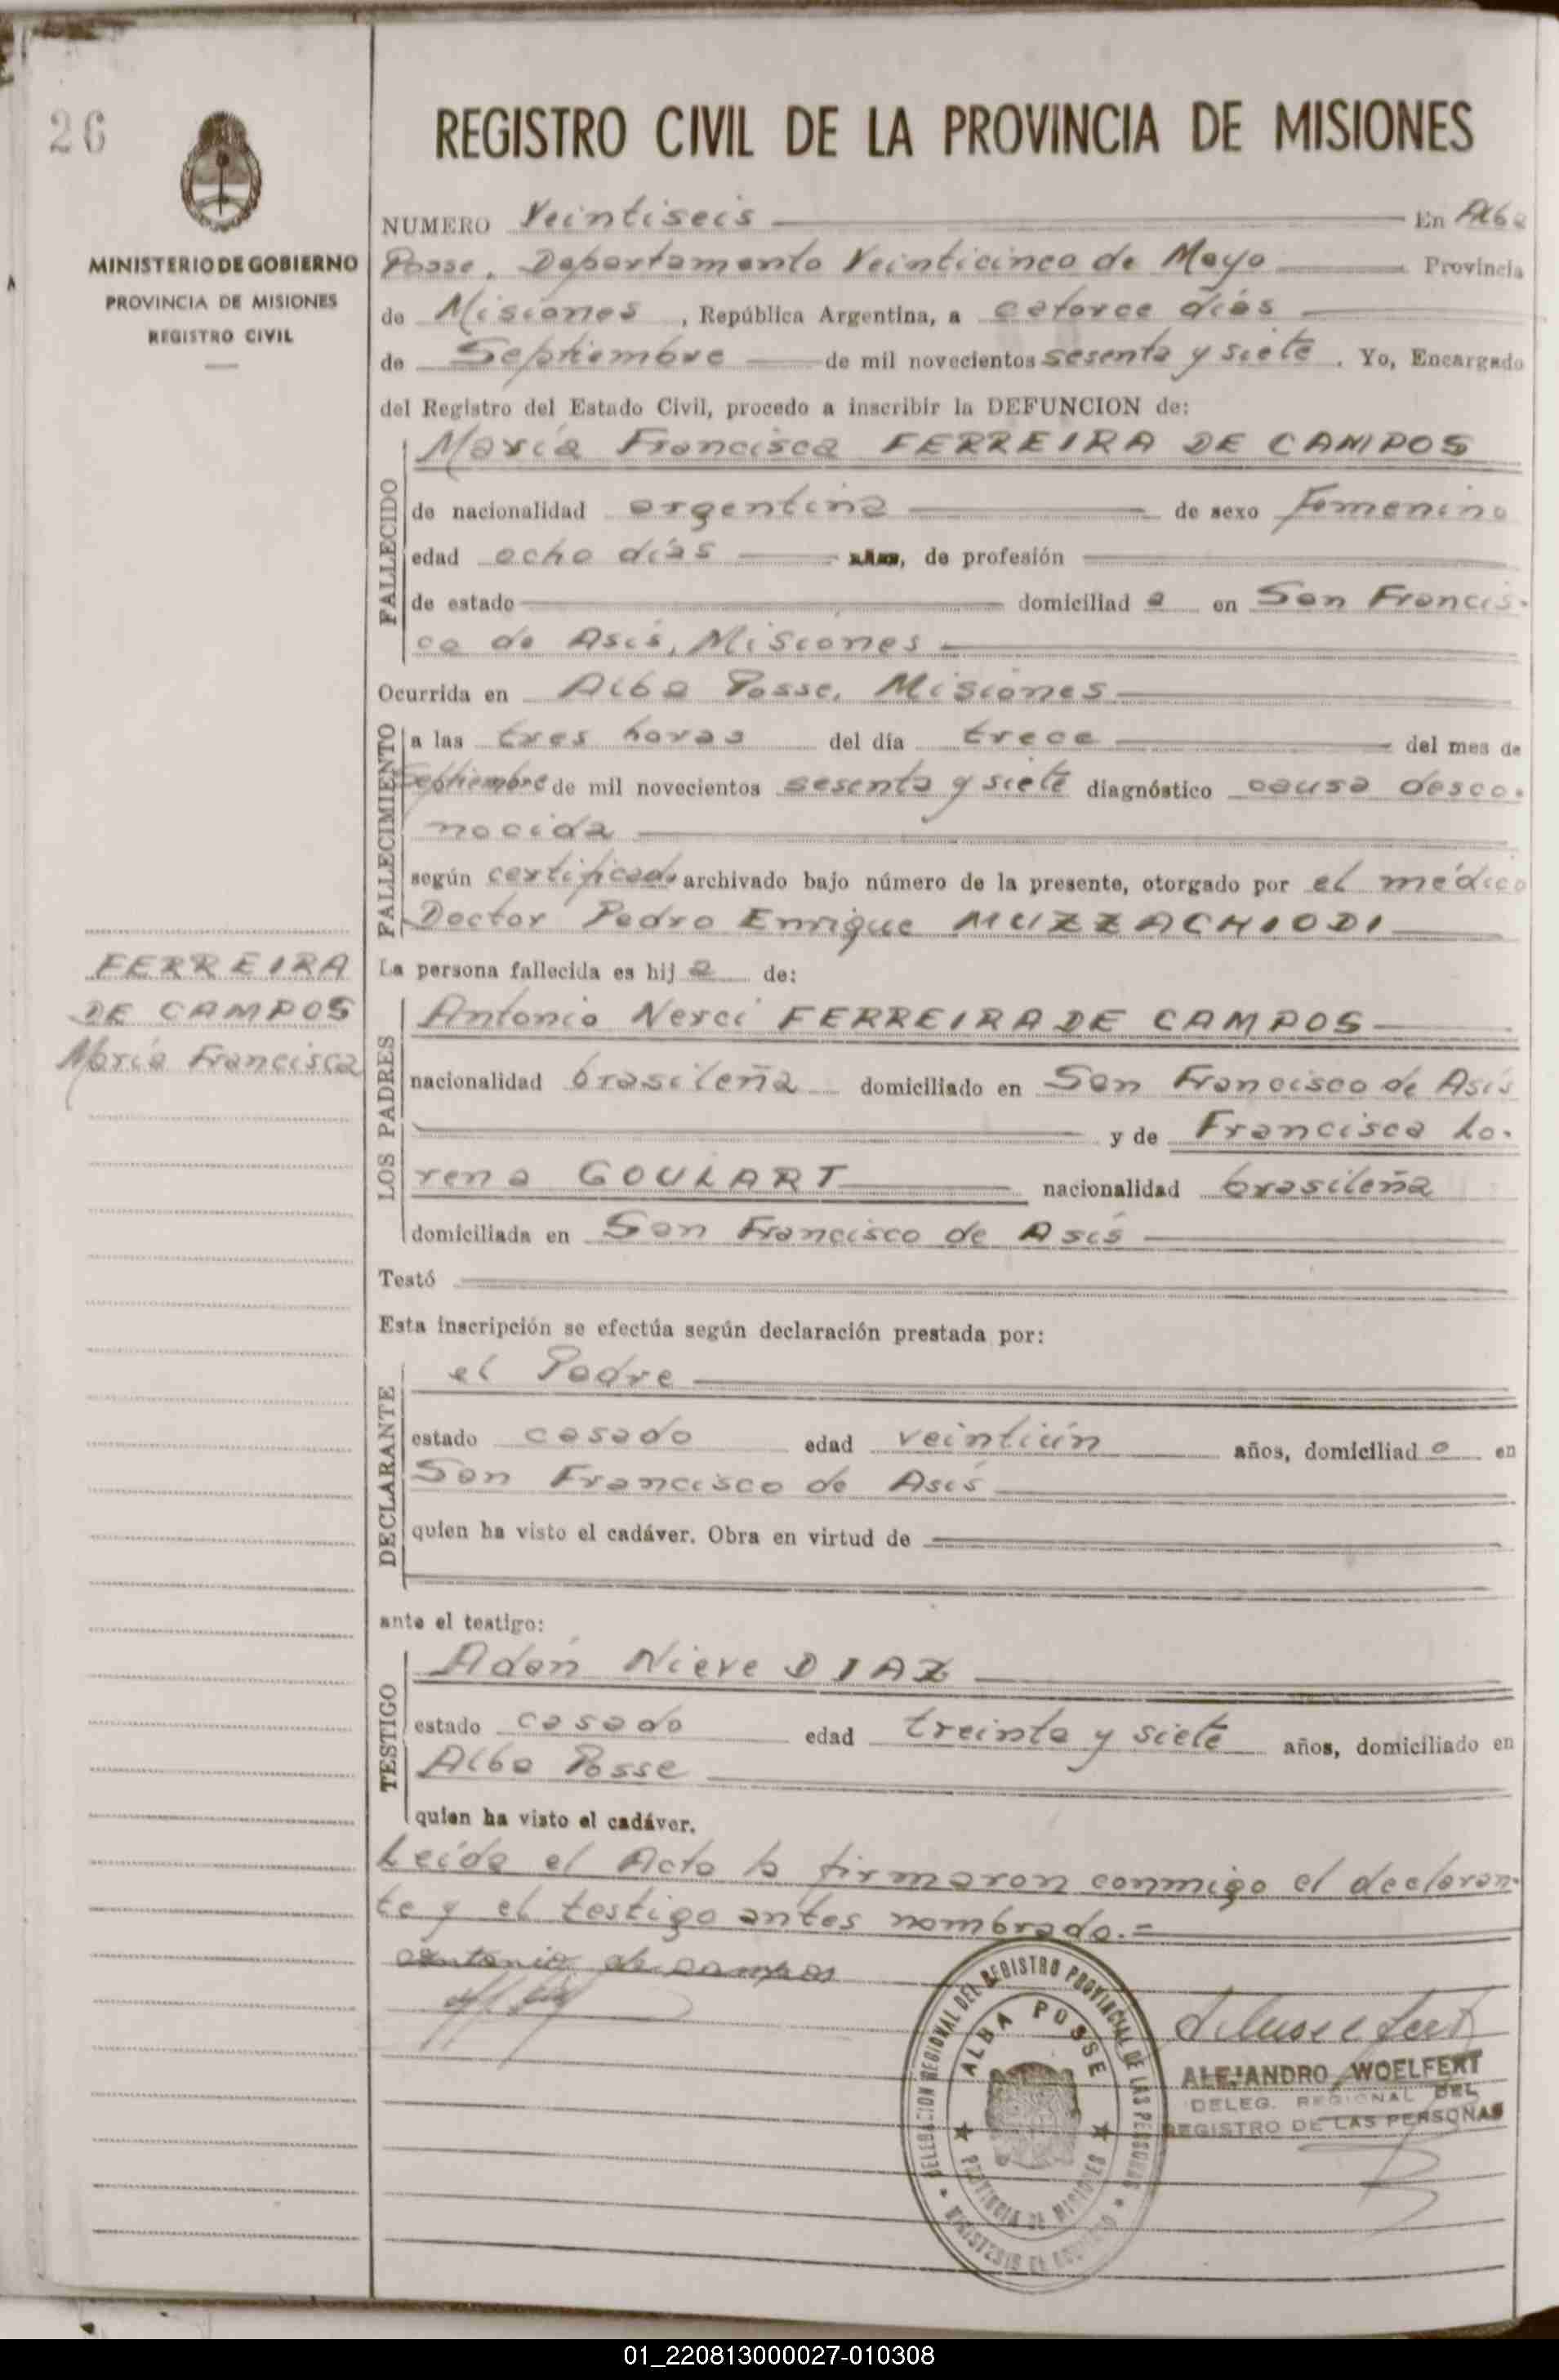 26
MINISTERIO DE GOBIERNO
PROVINCIA DE MISIONES
REGISTRO CIVIL
REGISTRO CIVIL DE LA PROVINCIA DE MISIONES
NUMERO Veintiseis En Alba
Posse, Departamento Veinticinco de Mayo Provincia
de Misiones, República Argentina, a catorce días
de Septiembre de mil novecientos sesenta y siete. Yo, Encargado
del Registro del Estado Civil, procedo a inscribir la DEFUNCION de:
FALLECIDO
María Francisca FERREIRA DE CAMPOS
de nacionalidad argentina de sexo Femenino
edad ocho días años, de profesión
de estado domiciliad a en San Francis-
co de Asís, Misiones
Ocurrida en Alba Posse, Misiones
FALLECIMIENTO
a las tres horas del día trece del mes de
Septiembre de mil novecientos sesenta y siete diagnóstico causa desco-
nocida
según certificado archivado bajo número de la presente, otorgado por el médico
Doctor Pedro Enrique MUZZACHIODI
FERREIRA
DE CAMPOS
María Francisca
La persona fallecida es hij a de:
LOS PADRES
Antonio Nerci FERREIRA DE CAMPOS
nacionalidad brasileña domiciliado en San Francisco de Asís
y de Francisca Lo-
rena GOULART nacionalidad brasileña
domiciliada en San Francisco de Asís
Testó
Esta inscripción se efectúa según declaración prestada por:
DECLARANTE
el Padre
estado casado edad veintiún años, domiciliad o en
San Francisco de Asís
quien ha visto el cadáver. Obra en virtud de
ante el testigo:
TESTIGO
Adán Nieve DIAZ
estado casado edad treinta y siete años, domiciliado en
Alba Posse
quien ha visto el cadáver.
Leída el Acta la firmaron conmigo el declaran-
te y el testigo antes nombrado.=
antonio de campos
DELEGACION REGIONAL DEL REGISTRO PROVINCIAL DE LAS PERSONAS
ALBA POSSE
PROVINCIA DE MISIONES
MINISTERIO DE GOBIERNO
ALEJANDRO WOELFERT
DELEG. REGIONAL DEL
REGISTRO DE LAS PERSONAS
01_220813000027-010308